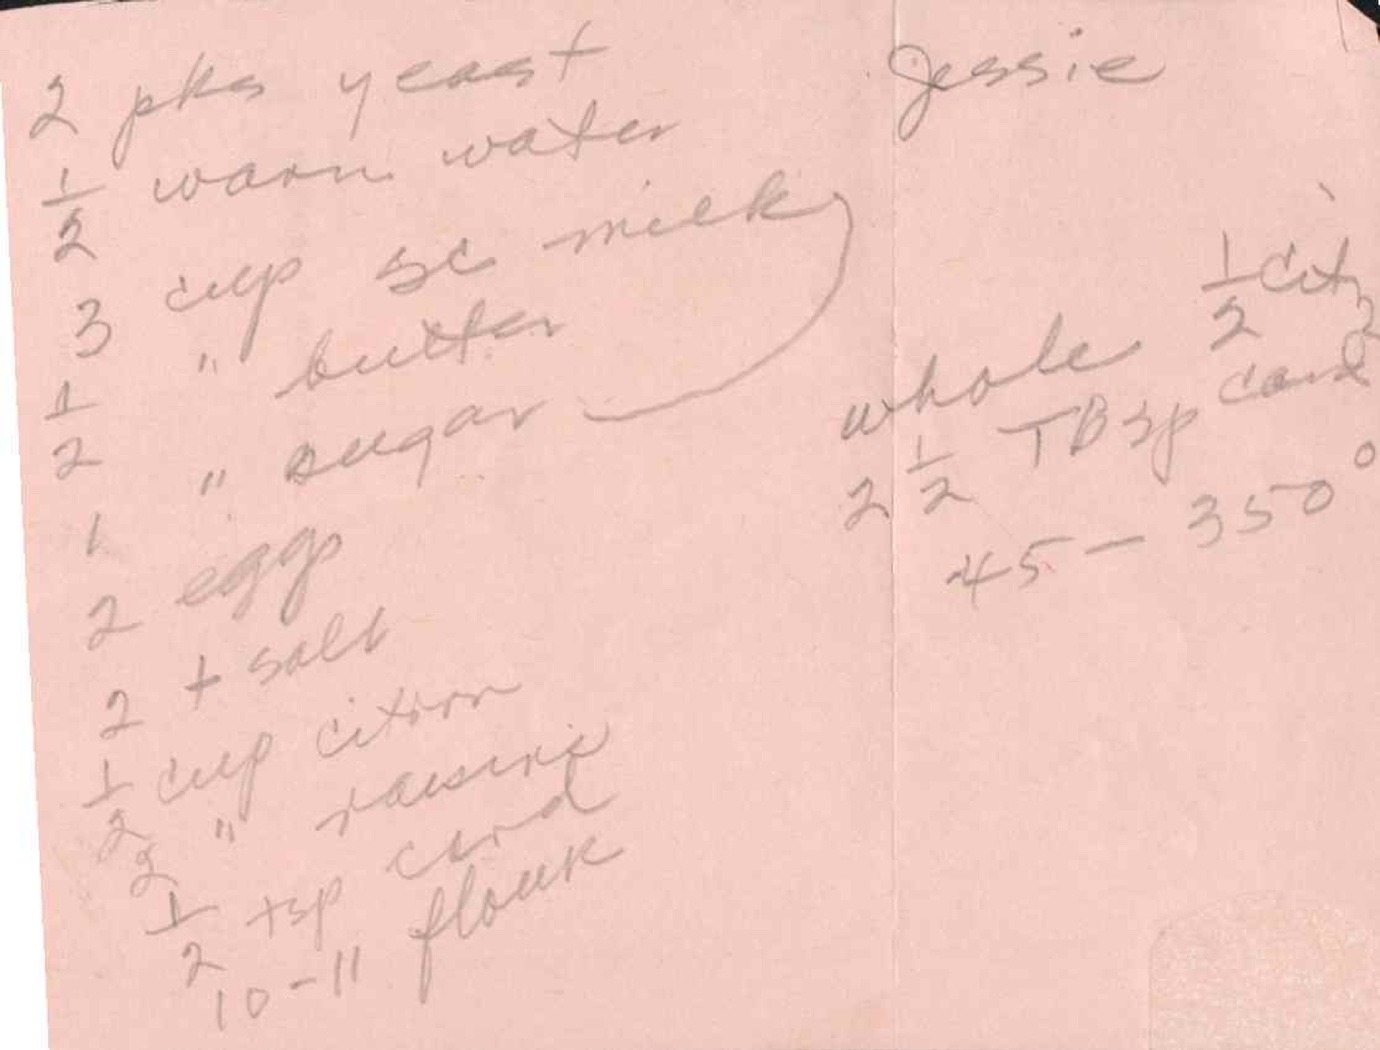 2 pks yeast
1/2 warm water
3 cup sc milk
1/2 " butter
1 " sugar
2 eggs
2 t salt
1/2 cup citron
2 " raisins
1/2 tsp card
10-11 flour
Jessie
1/2 cit
whole
2 1/2 TBsp card
45 - 350°